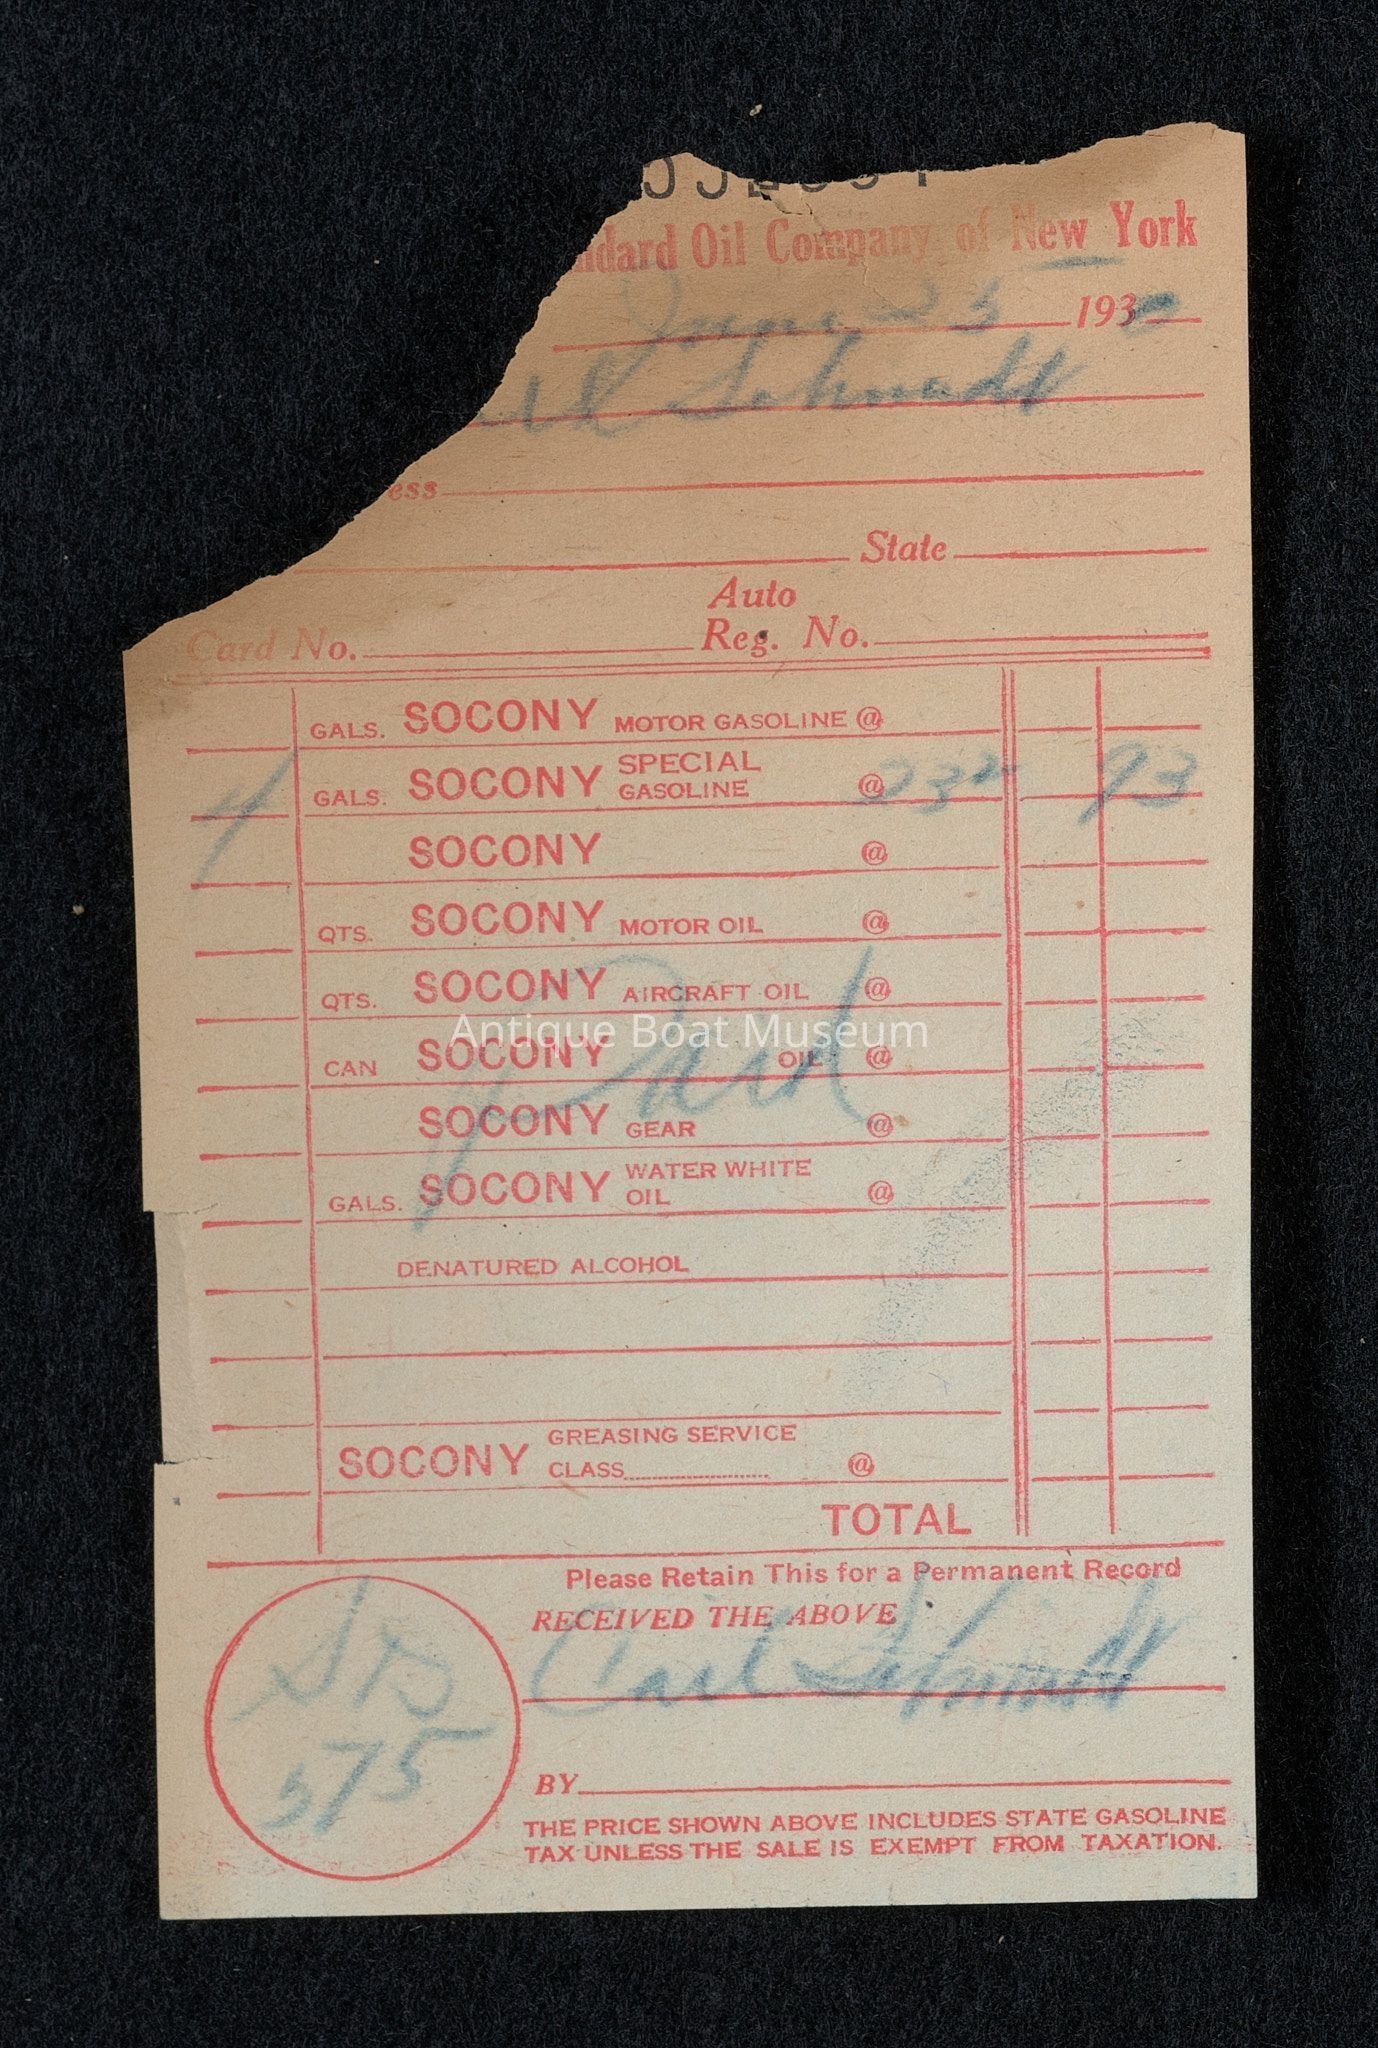 ndard Oil Company of New York
June 23 1930
Schmidt
ess
State
Auto
Card No. Reg. No.
GALS. SOCONY MOTOR GASOLINE @
4 GALS. SOCONY SPECIAL GASOLINE @ 23² 93
SOCONY @
QTS. SOCONY MOTOR OIL @
QTS. SOCONY AIRCRAFT OIL @
Antique Boat Museum
CAN SOCONY OIL @
Paid
SOCONY GEAR @
GALS. SOCONY WATER WHITE OIL @
DENATURED ALCOHOL
SOCONY GREASING SERVICE
CLASS @
TOTAL
Please Retain This for a Permanent Record
RECEIVED THE ABOVE
Carl Schmidt
575
BY
THE PRICE SHOWN ABOVE INCLUDES STATE GASOLINE
TAX UNLESS THE SALE IS EXEMPT FROM TAXATION.